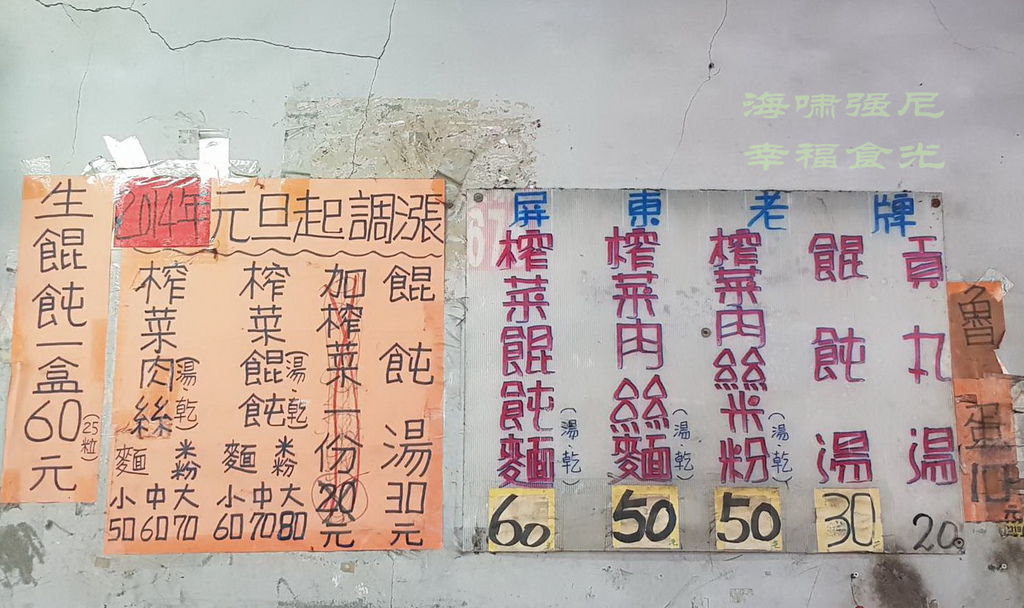 海嘯强尼
幸福食光
生餛飩一盒60元
(25粒)
2014年元旦起調漲
餛飩湯30元
加榨菜一份20元
榨菜餛飩(湯、乾)
麵 米粉
小 中 大
60 70 80
榨菜肉絲(湯、乾)
麵 米粉
小 中 大
50 60 70
屏東老牌
榨菜餛飩麵(湯、乾)
60
榨菜肉絲麵(湯、乾)
50
榨菜肉絲米粉(湯、乾)
50
餛飩湯
30
貢丸湯
20
魯蛋10元